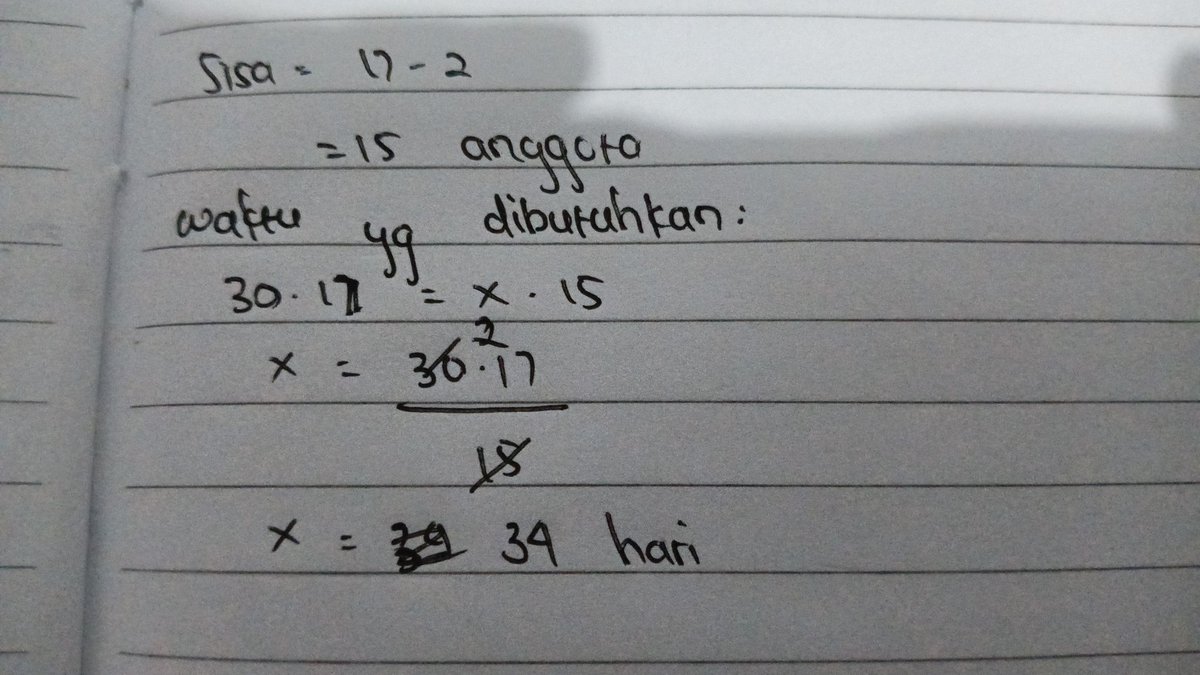 Sisa = 17 - 2
= 15 anggota
waktu yg dibutuhkan:
30 . 17 = x . 15
x = 30 2 . 17
15
x = 34 hari